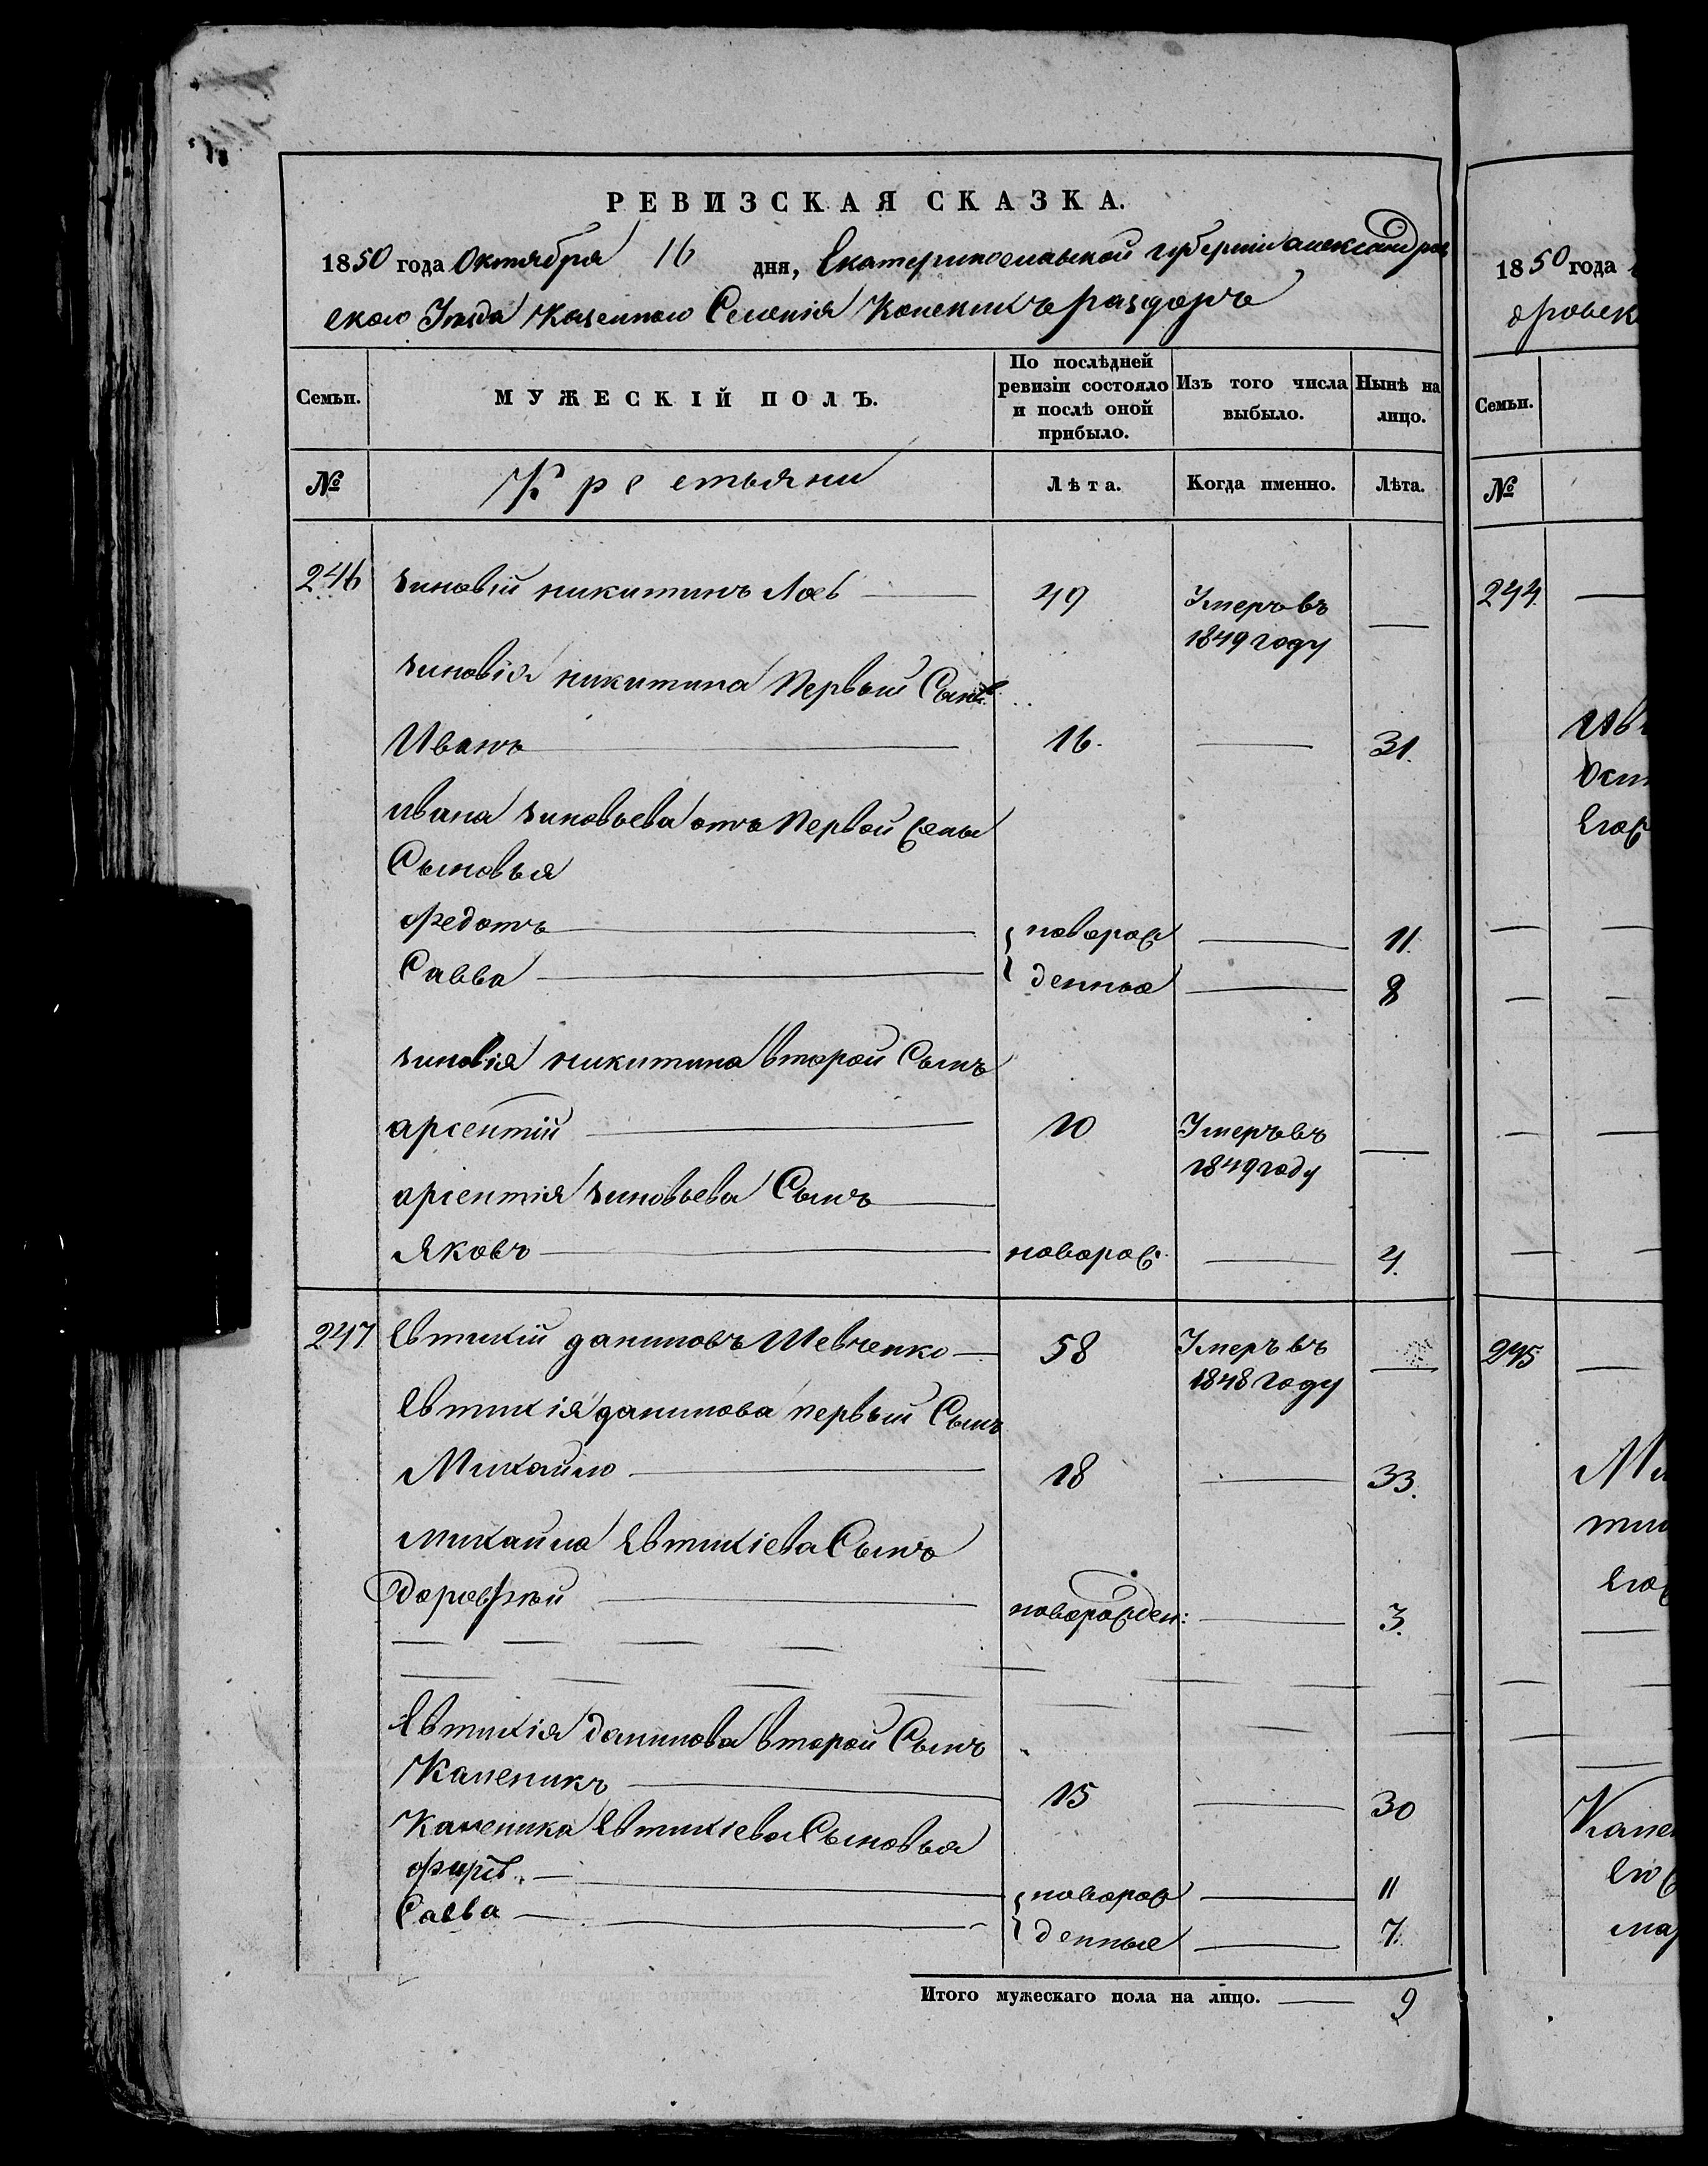 РЕВИЗСКАЯ СКАЗКА.
1850 года Октября 16 дня, Екатеринославской губернии александров
ского Уезда Казенного Селения Конскихъ раздоръ
Семьи.
МУЖЕСКІЙ ПОЛЪ.
По послѣдней ревизіи состояло и послѣ оной прибыло.
Изъ того числа выбыло.
Нынѣ на лицо.
№ Крестьяни Лѣта. Когда именно. Лѣта.
246 зиновій никитинъ Лоб 49 Умеръ въ —
1849 году
зиновія никитина Первый Сынъ
Иванъ 16. — 31.
ивана зиновьева отъ Первой жены
Сыновья
Федотъ новорож — 11.
Савва денные — 8
зиновія никитина второй Сынъ
арсентий 20 Умеръ въ —
1849 году
арсентия зиновьева Сынъ
Яковъ новорож. — 4.
247 Евтихій даниловъ Шевченко 58 Умеръ въ —
1848 году
Евтихія данилова первый Сынъ
Михайло 18 — 33.
михайла Евтихіева Сынъ
Дорофѣй новорожден: — 3.
Евтихія данилова второй Сынъ
Каленикъ 15 — 30
Каленика Евтихіева Сыновья
фирсъ новорож — 11
Савва денные — 7.
Итого мужескаго пола на лицо. — 9
1850 года
дровск
Семьи.
№
244.
Ив
Его ж
245
Ми
Его ж
Кале
Его ж
мар